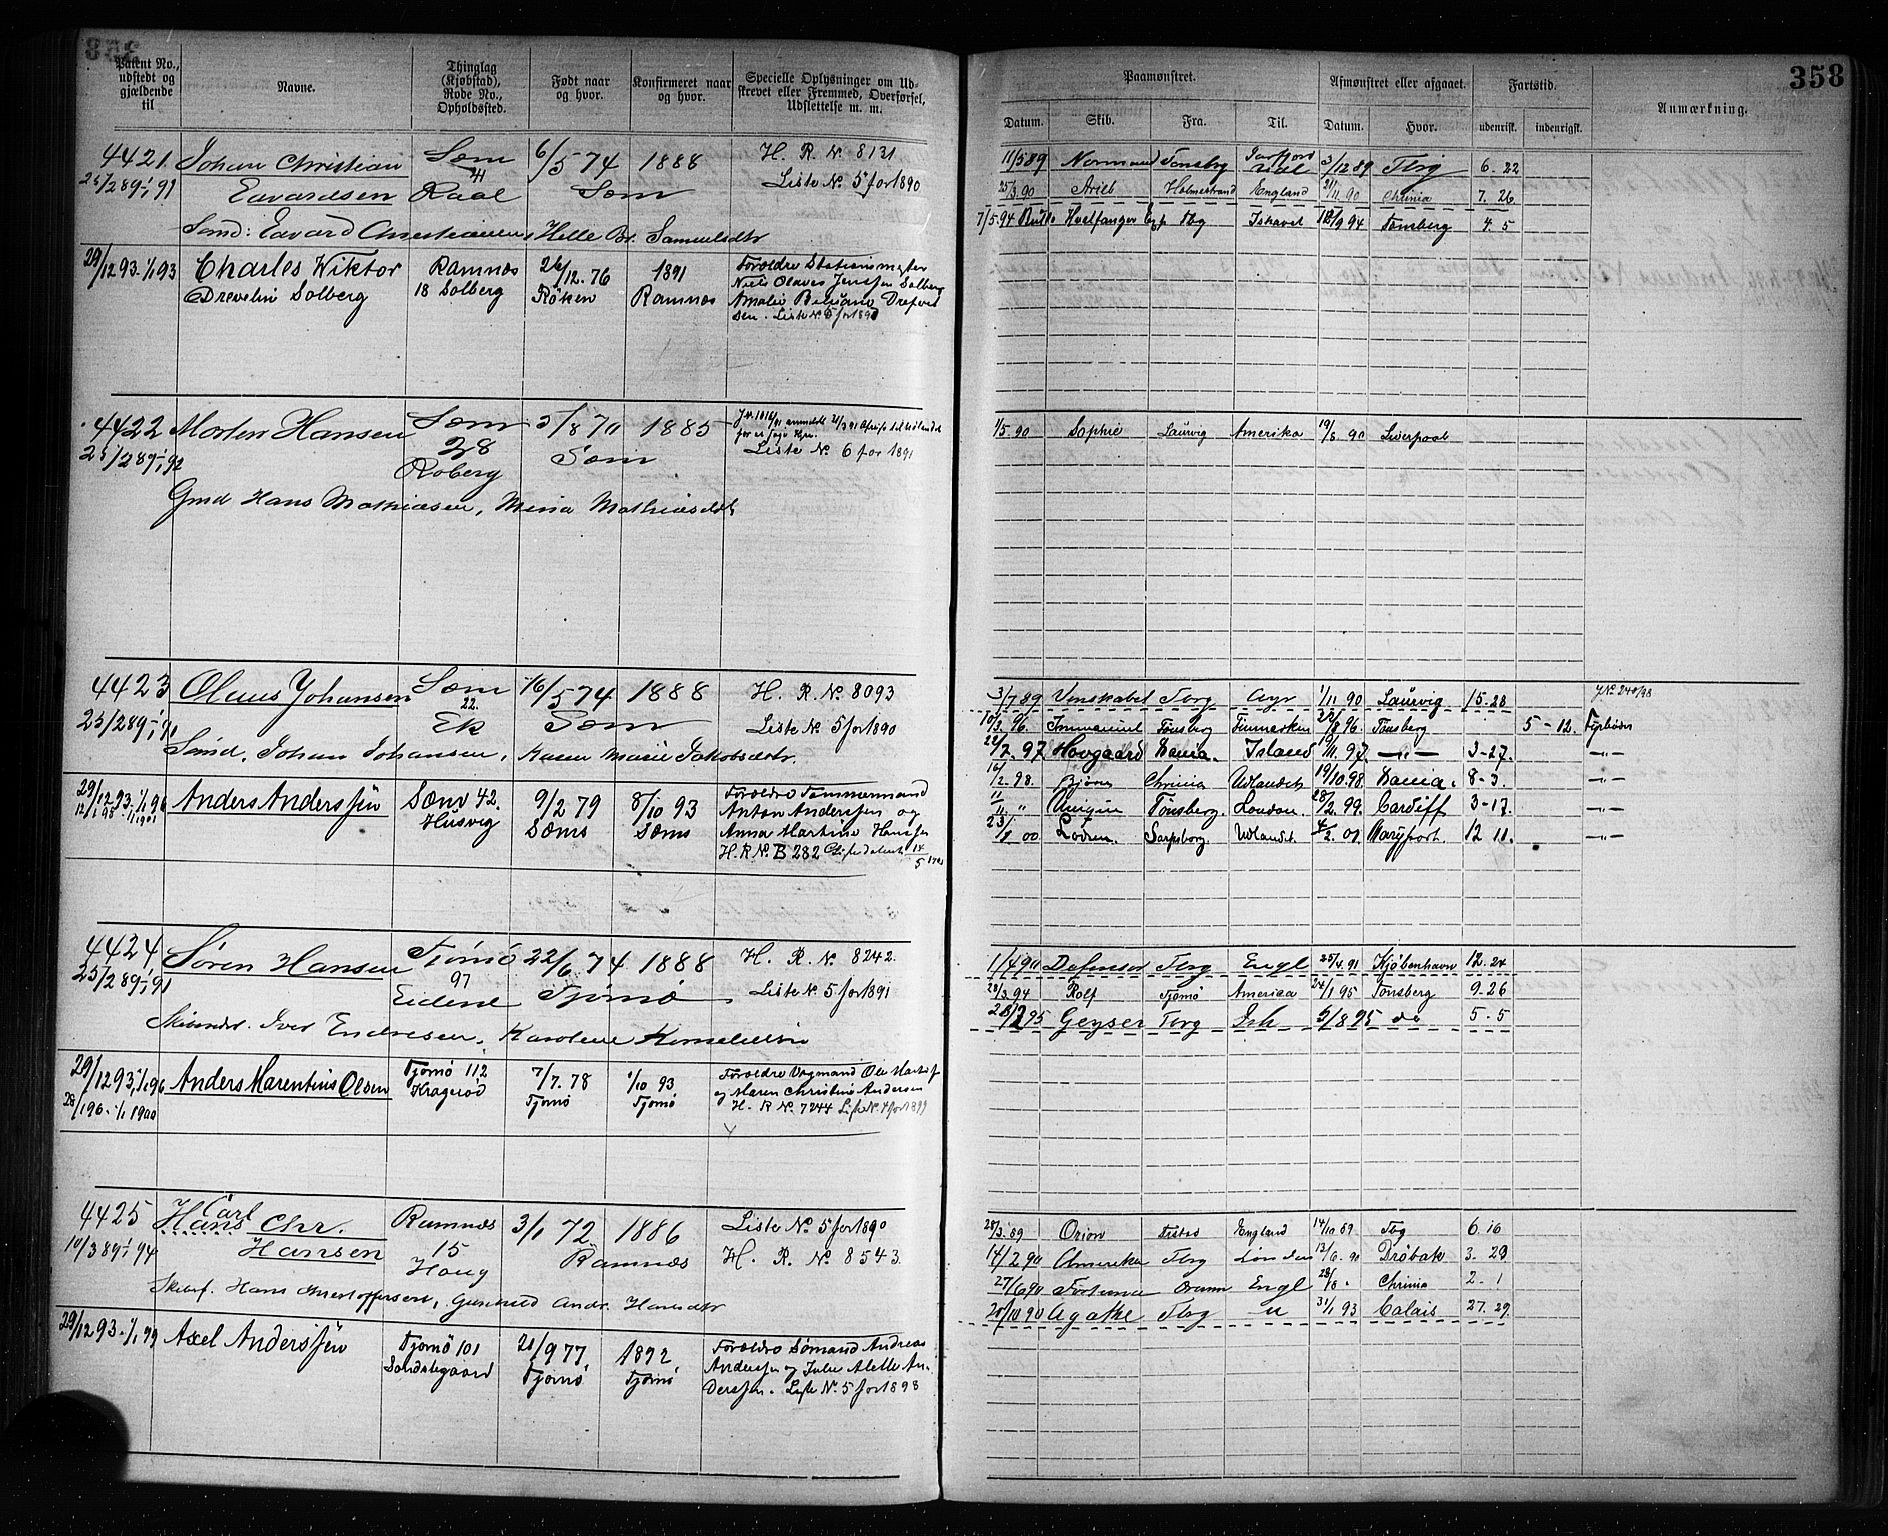 358
Patent No., udstedt og gjældende til | Navne. | Thinglag (Kjøbstad), Rode No., Opholdssted. | Født naar og hvor. | Konfirmeret naar og hvor. | Specielle Oplysninger om Udskrevet eller Fremmed, Overførsel, Udslettelse m. m.
4421 Johan Christian Sæm 6/5 74 1888 H. R. N. 8131
25/2 89-1/1 91 Edvardsen 41 Raael Sæm Liste No 5 for 1890
Sønd: Edvard Christiansen, Helle Br. Samuelsdtr
29/12 93-1/1 93 Charles Wiktor Ramnæs 26/12 76 1891 Forældre Stationsmester
Drevelin Solberg 18 Solberg Röken Ramnæs Niels Olaves Jenssen Solberg
Amalie
Liste No 5 for 1890
4422 Morten Hansen Sæm 5/8 70 1885
25/2 89-1/1 92 28 Roberg Sæm Liste No 6 for 1891
Gmd Hans Mathiasen, Mina Mathiasdtr
4423 Olaus Johansen Sæm 16/5 74 1888 H. R. No 8093
25/2 89-1/1 91 22. Ek Sæm Liste No 5 for 1890
Smd. Johan Johansen, Karen Marie Jakobsdtr.
29/12 93-1/1 96 Anders Anderssen Sæm 42. 9/2 79 8/10 93 Forældre Tømmermand
Husvig Sæms Sæms Anton Anderssen og
Anna Martine Hanssen
H. R No B 282
4424 Sören Hansen Tjömö 22/6 74 1888 H. R. No 8242.
25/2 89-1/1 91 97 Eidene Tjömö Liste No 5 for 1891
Skibmdr. Iver Endresen, Karoline Korneliussen
29/12 93-1/1 96 Anders Marentius Olsen Tjømø 112 7/7 78 1/10 93 Forældre
28/1 96-1/1 1900 Kragerød Tjømø Tjømø og Maren Christine Andersen
H. R No 7244 Liste No 4 for 1899
4425 Carl
Hans Chr. Ramnæs 3/1 72 1886 Liste No 5 for 1890
10/3 89-1/1 94 Hansen 15 Haug Ramnæs H. R. No 8543.
Skibsf. Hans Kristoffersen, Gunhild Andr. Hansdtr
29/12 93-1/1 99 Axel Anderssen Tjømø 101 21/9 77 1892. Forældre Sømand Andreas
Sandstegaard Tjømø Tjømø Anderssen og Julie Alette An-
derssen. Liste No 5 for 1898
Paamønstret. | Afmønstret eller afgaaet. | Fartstid. | Anmærkning.
Datum. | Skib. | Fra. | Til. | Datum. | Hvor. | udenrisk. | indenrigsk.
11/5 89 Normand Tønsbrg 3/12 89 Tbrg 6. 22
25/3 90 Ariel Holmestrand England 21/11 90 Chrinia 7. 26
7/5 94 Hvalfanger Tbg Ishavet 12/9 94 Tønsberg 4. 5
1/5 90 Sophie Laurvig Amerika 19/8 90 Liverpool
3/7 89 Venskabet Tbrg Ayr 1/11 90 Laurvig 15-28 JNo 240/98
10/3 96. Immanuel Tønsberg Finmarken 22/8 96. Tønsberg 5-12. Fyrbøder
2/2 97 Hovgaard Xania. Island 19/11 97 -"- 3-27. -"-
16/2 98. Bjørn Chrinia Udlandet 19/10 98. Xania. 8-3. -"-
11/11 " Unigen Tønsberg. London. 28/2 99. Cardiff 3-17. -"-
23/1 00 Sarpsborg Udlandet. 4/2 01 Maryport. 12 11. -"-
1/4 90 Defensor Tbrg Engl 25/4 91 Kjøbenhavn 12. 24
28/3 94 Rolf Tjømø America 24/1 95 Tønsberg 9-26
28/2 95 Geyser Tbrg Ish 5/8 95 do 5-5
28/3 89 Orion England 14/10 89 Tbg 6. 16
14/2 90 Amerika Tbrg London 12/6 90 Drøbak 3. 29
27/6 90 Fortuna Engl 28/8 " Chrinia 2. 1
20/10 90 Agathe Tbrg " 31/1 93 Calais 27. 29.